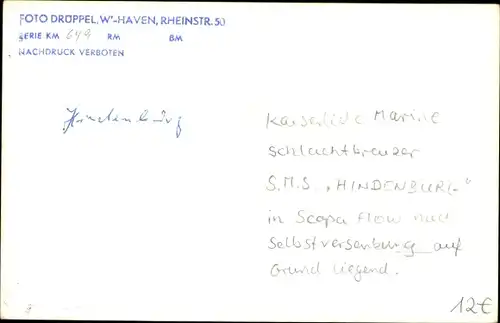 FOTO DRÜPPEL, W'-HAVEN, RHEINSTR. 50
SERIE KM 649 RM BM
NACHDRUCK VERBOTEN
Hindenburg
Kaiserliche Marine
Schlachtkreuzer
S.M.S. „HINDENBURG"
in Scapa Flow nach
Selbstversenkung auf
Grund liegend.
12€